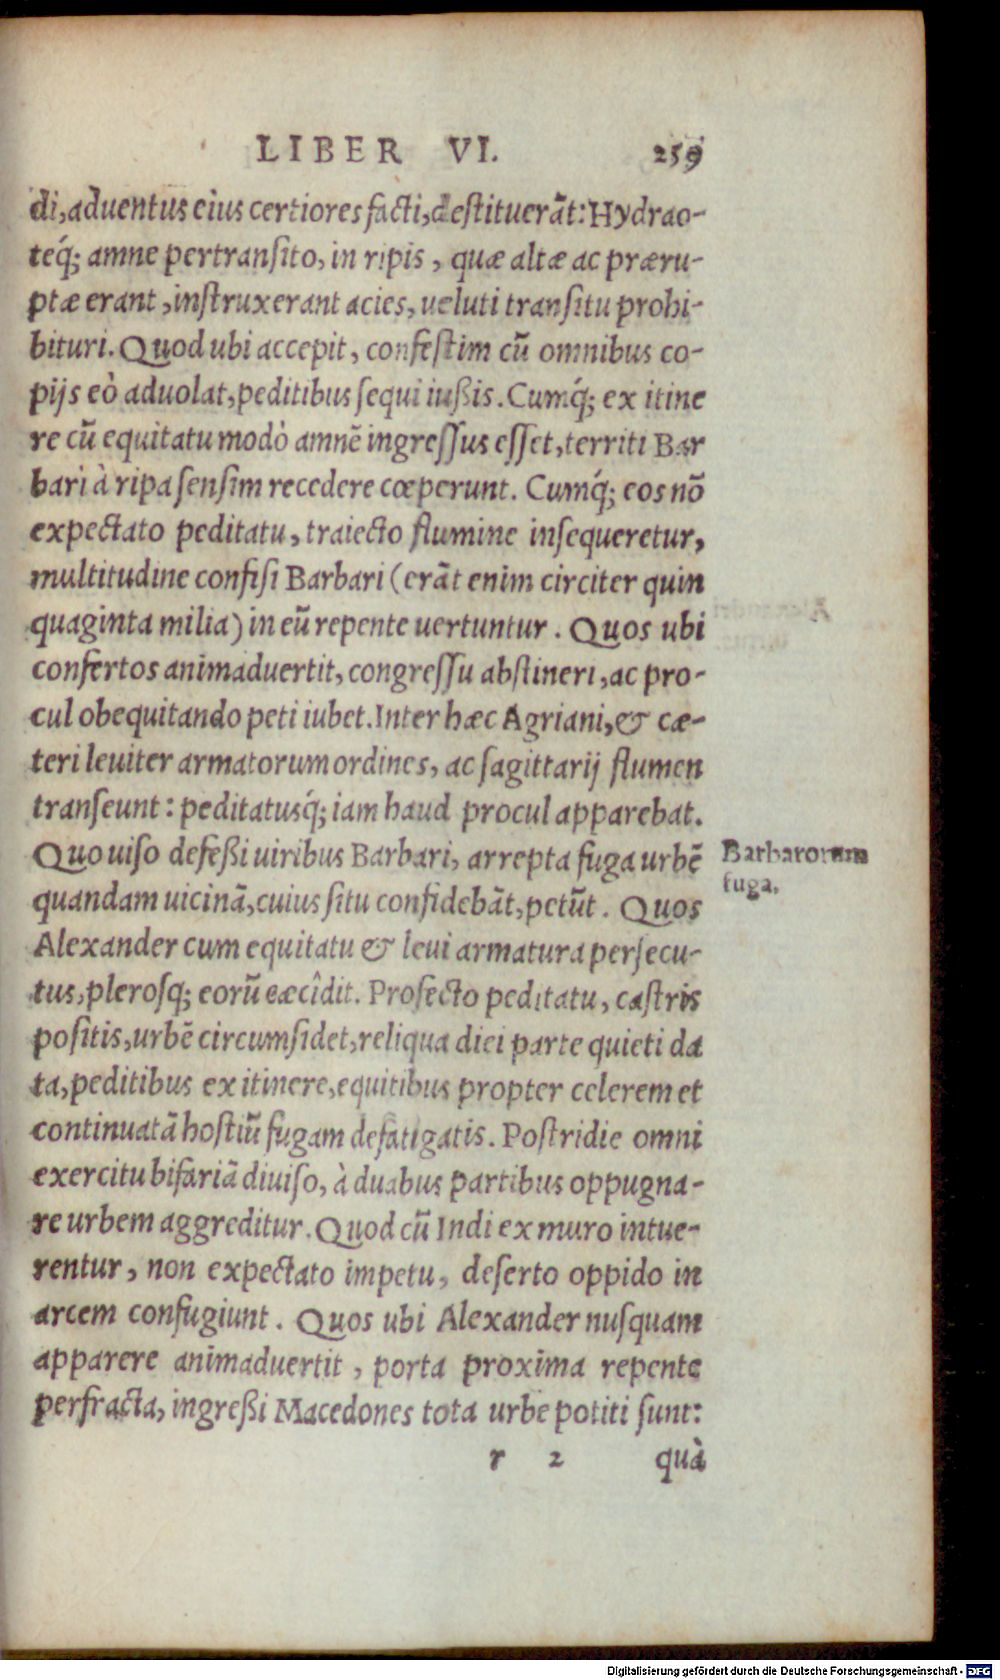 LIBER VI. 259
di, aduentus eius certiores facti, destituerāt: Hydrao-
teq́; amne pertransito, in ripis, quæ altæ ac præru-
ptæ erant, instruxerant acies, ueluti transitu prohi-
bituri. Quod ubi accepit, confestim cū omnibus co-
pijs eò aduolat, peditibus sequi iußis. Cumq́; ex itine
re cū equitatu modò amnē ingressus esset, territi Bar
bari à ripa sensim recedere cœperunt. Cumq́; eos nō
expectato peditatu, traiecto flumine insequeretur,
multitudine confisi Barbari (erāt enim circiter quin
quaginta milia) in eū repente uertuntur. Quos ubi
confertos animaduertit, congressu abstineri, ac pro-
cul obequitando peti iubet. Inter hæc Agriani, & cæ-
teri leuiter armatorum ordines, ac sagittarij flumen
transeunt: peditatusq́; iam haud procul apparebat.
Quo uiso defeßi uiribus Barbari, arrepta fuga urbē
quandam uicinā, cuius situ confidebāt, petūt. Quos
Barbarorum
fuga.
Alexander cum equitatu & leui armatura persecu-
tus, plerosq; eorū eæcîdit. Profecto peditatu, castris
positis, urbē circumsidet, reliqua diei parte quieti da
ta, peditibus ex itinere, equitibus propter celerem et
continuatā hostiū fugam defatigatis. Postridie omni
exercitu bifariā diuiso, à duabus partibus oppugna-
re urbem aggreditur. Quod cū Indi ex muro intue-
rentur, non expectato impetu, deserto oppido in
arcem confugiunt. Quos ubi Alexander nusquam
apparere animaduertit, porta proxima repente
perfracta, ingreßi Macedones tota urbe potiti sunt:
r 2 quà
Digitalisierung gefördert durch die Deutsche Forschungsgemeinschaft - DFG